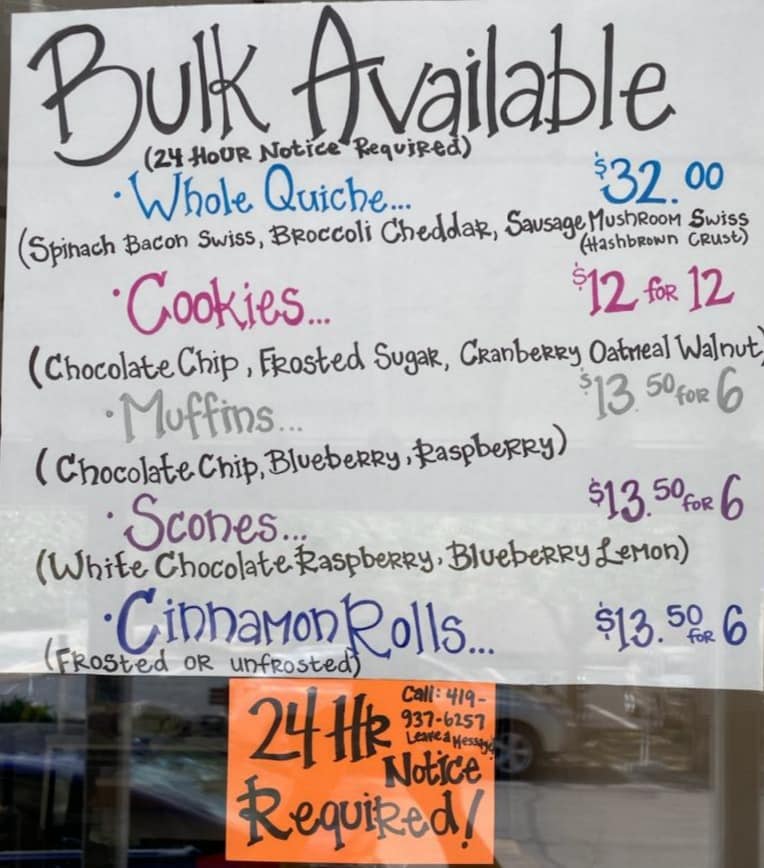 Bulk Available
(24 Hour Notice Required)
• Whole Quiche... $32.00
(Spinach Bacon Swiss, Broccoli Cheddar, Sausage Mushroom Swiss
(Hashbrown Crust)
• Cookies... $12 for 12
(Chocolate Chip, Frosted Sugar, Cranberry Oatmeal Walnut)
• Muffins... $13.50 for 6
(Chocolate Chip, Blueberry, Raspberry)
• Scones... $13.50 for 6
(White Chocolate Raspberry, Blueberry Lemon)
• Cinnamon Rolls... $13.50 for 6
(Frosted or unfrosted)
24 Hr
Call: 419-
937-6257
Leave a Message
Notice
Required!